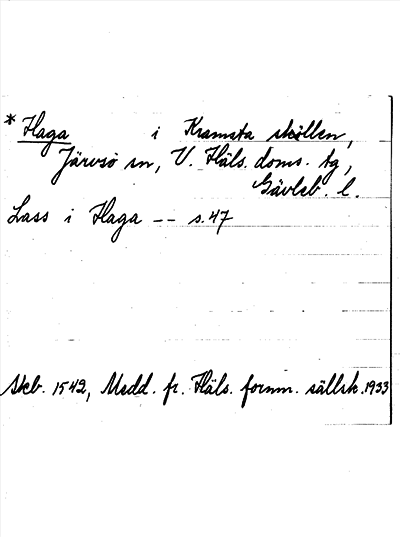 * Haga i Kramsta skällen,
Järvsö sn, V. Häls. doms. tg,
Gävleb. l.
Lass i Haga -- s. 47
Skb. 1542, Medd. fr. Häls. fornm. sällsk. 1933